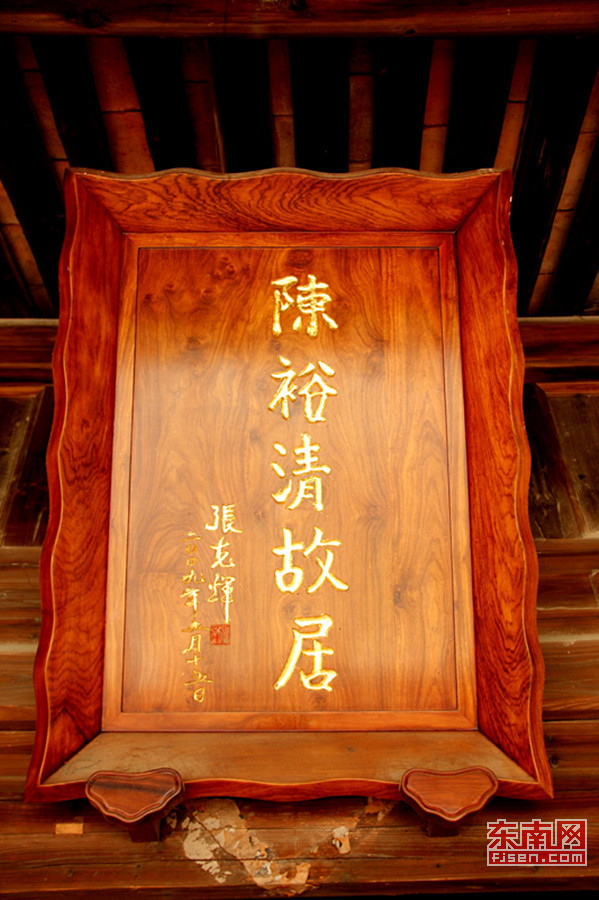 陳裕清故居
張克輝
二〇〇九年五月十六日
东南网
fjsen.com